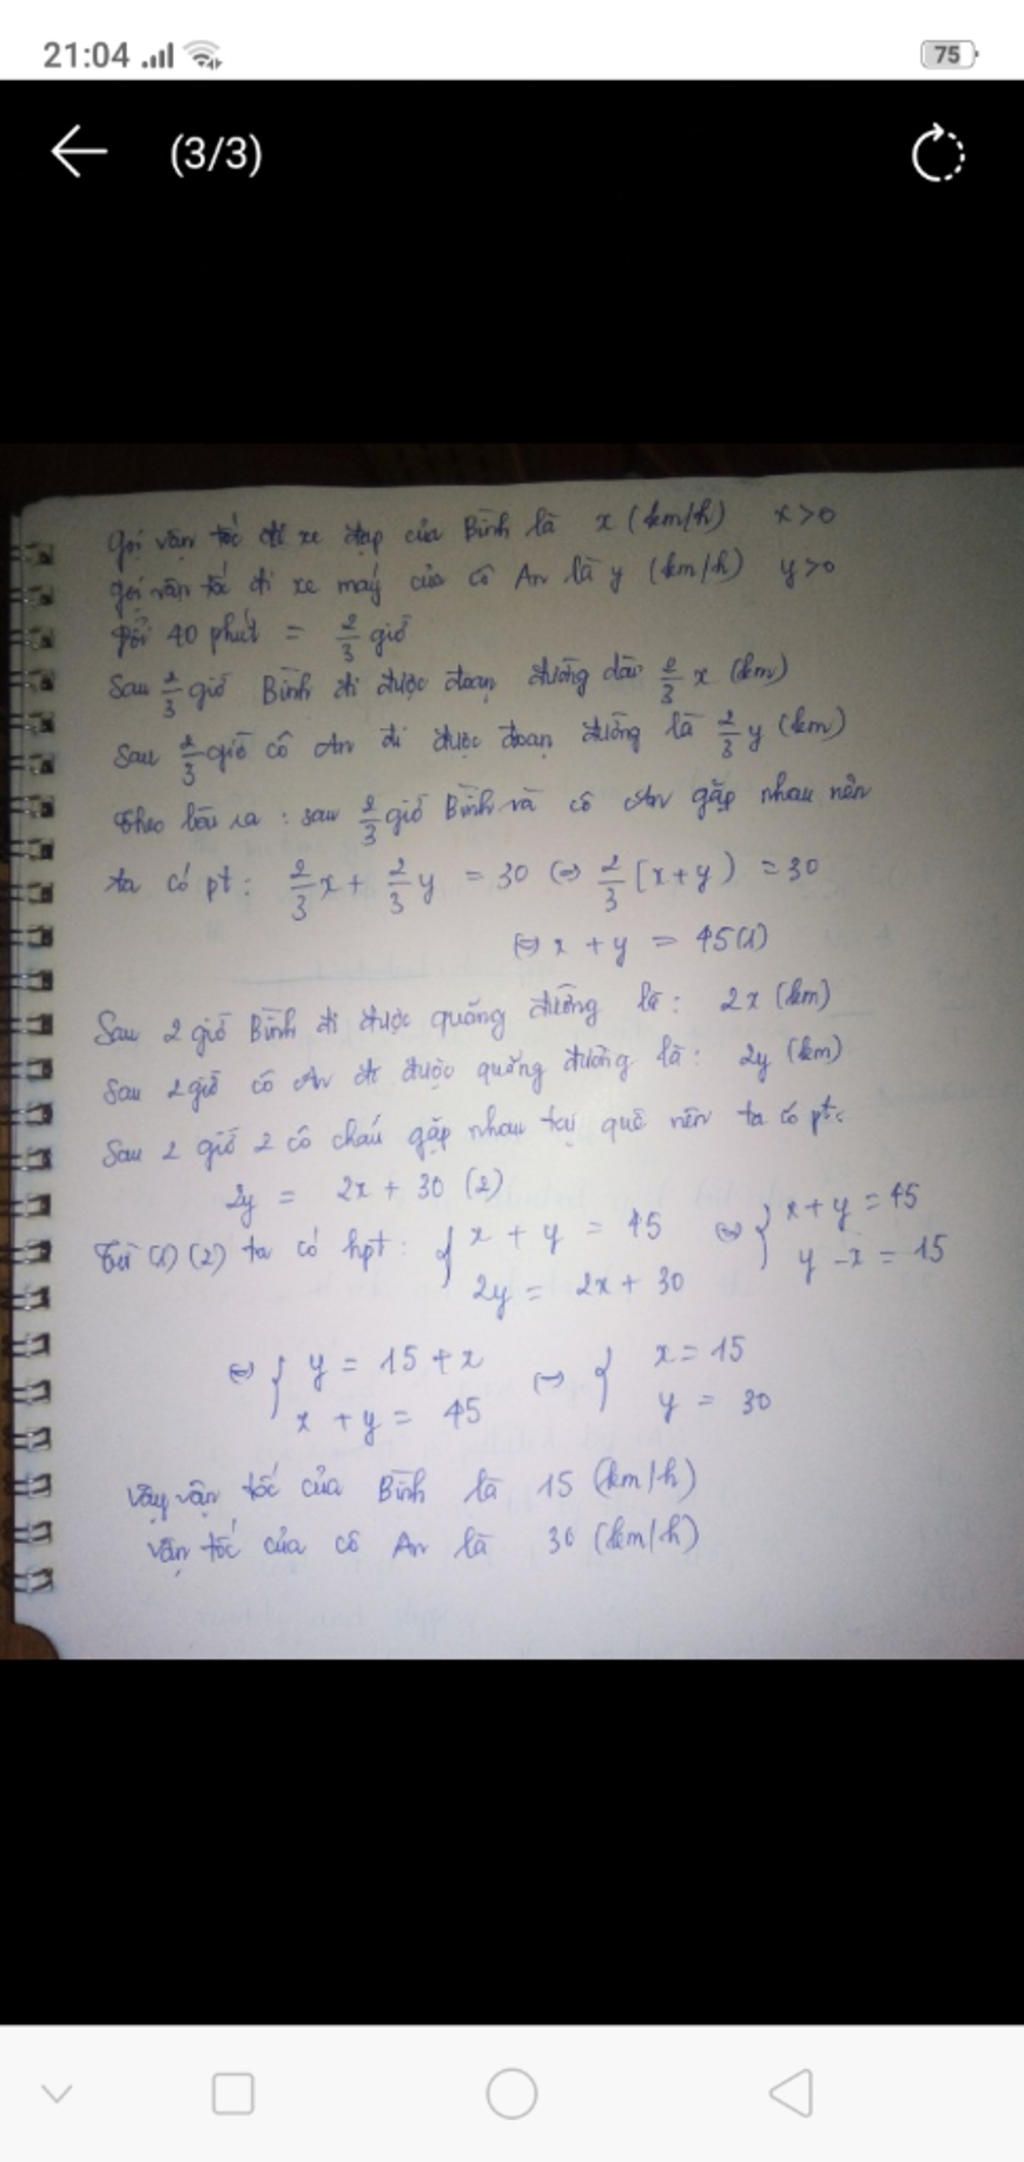 21:04
75
(3/3)
Gọi vận tốc đi xe đạp của Bình là x (km/h) x>0
Gọi vận tốc đi xe máy của cô An là y (km/h) y>0
Đổi 40 phút = 2/3 giờ
Sau 2/3 giờ Bình đi được đoạn đường dài 2/3 x (km)
Sau 2/3 giờ cô An đi được đoạn đường là 2/3 y (km)
Theo bài ra : sau 2/3 giờ Bình và cô An gặp nhau nên
ta có pt: 2/3 x + 2/3 y = 30 (=) 2/3 [x+y) = 30
(=) x + y = 45 (1)
Sau 2 giờ Bình đi được quãng đường là: 2x (km)
Sau 2 giờ cô An đi được quãng đường là: 2y (km)
Sau 2 giờ 2 cô cháu gặp nhau tại quê nên ta có pt:
2y = 2x + 30 (2)
Từ (1) (2) ta có hpt: { x + y = 45 (=) { x + y = 45
2y = 2x + 30 y - x = 15
(=) { y = 15 + x (=) { x = 15
x + y = 45 y = 30
Vậy vận tốc của Bình là 15 (km/h)
vận tốc của cô An là 30 (km/h)